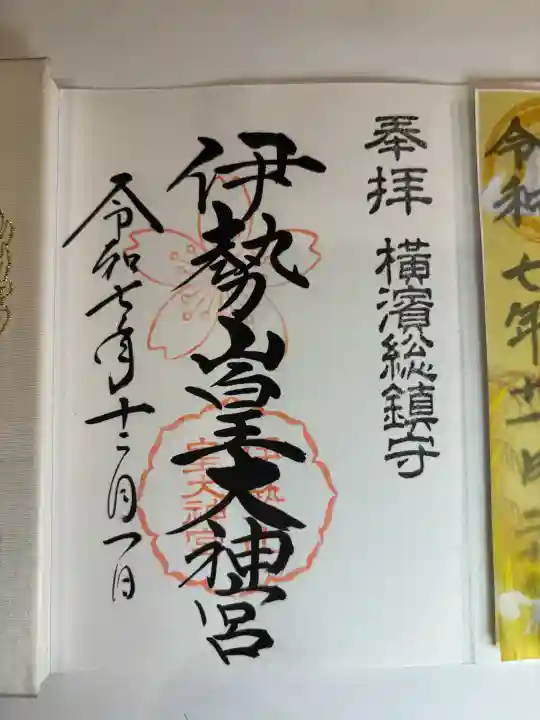 奉拝 横濱総鎮守
伊勢山皇大神宮
令和七年十二月一日
令和七年